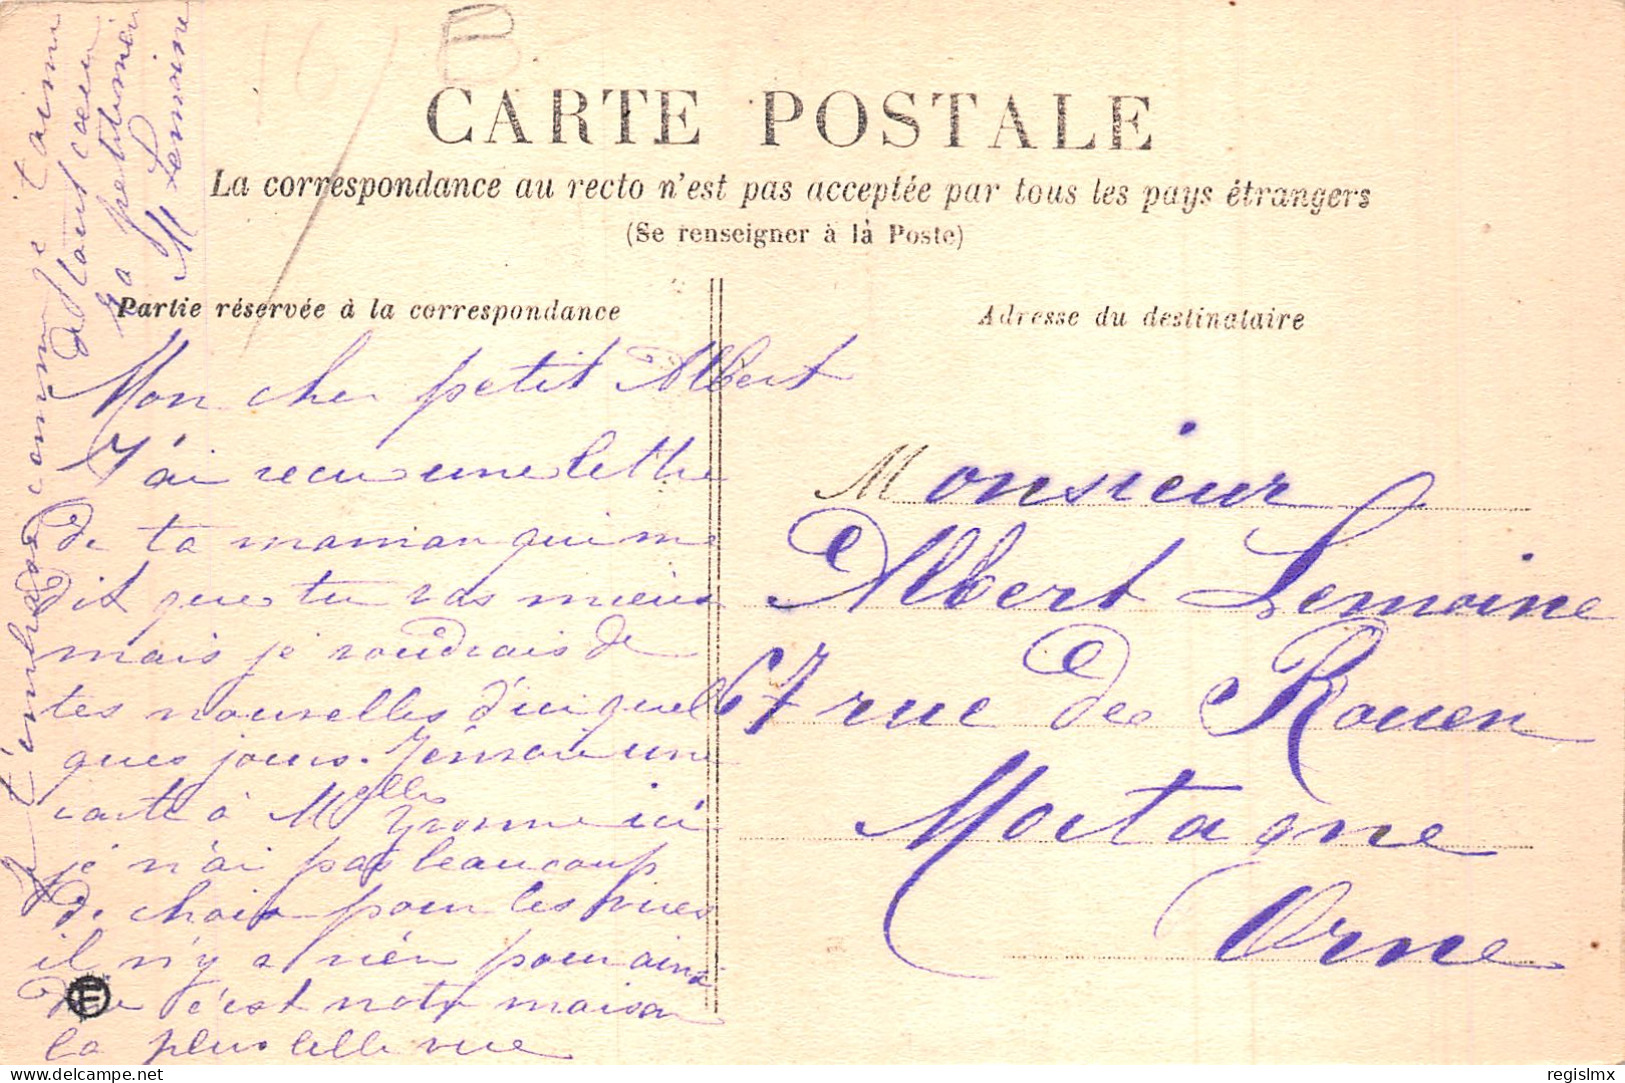 CARTE POSTALE
La correspondance au recto n'est pas acceptée par tous les pays étrangers
(Se renseigner à là Poste)
Partie réservée à la correspondance
Mon cher petit Albert
J'ai recu une lettre
de ta maman qui me
dit que tu vas mieux
mais je voudrais de
tes nouvelles d'ici quel
ques jours. J'envoie une
carte à Melle Yvonne ici
je n'ai pas beaucoup
de choix pour les vues
il n'y a rien pour ainsi
dire c'est notre maison
la plus belle vue
je t'embrasse comme je t'aime
de tout cœur
ta petite mère
M Lemoine
Adresse du destinataire
Monsieur
Albert Lemoine
67 rue de Rouen
Mortagne
Orne
E
B
16
www.delcampe.net
regislmx